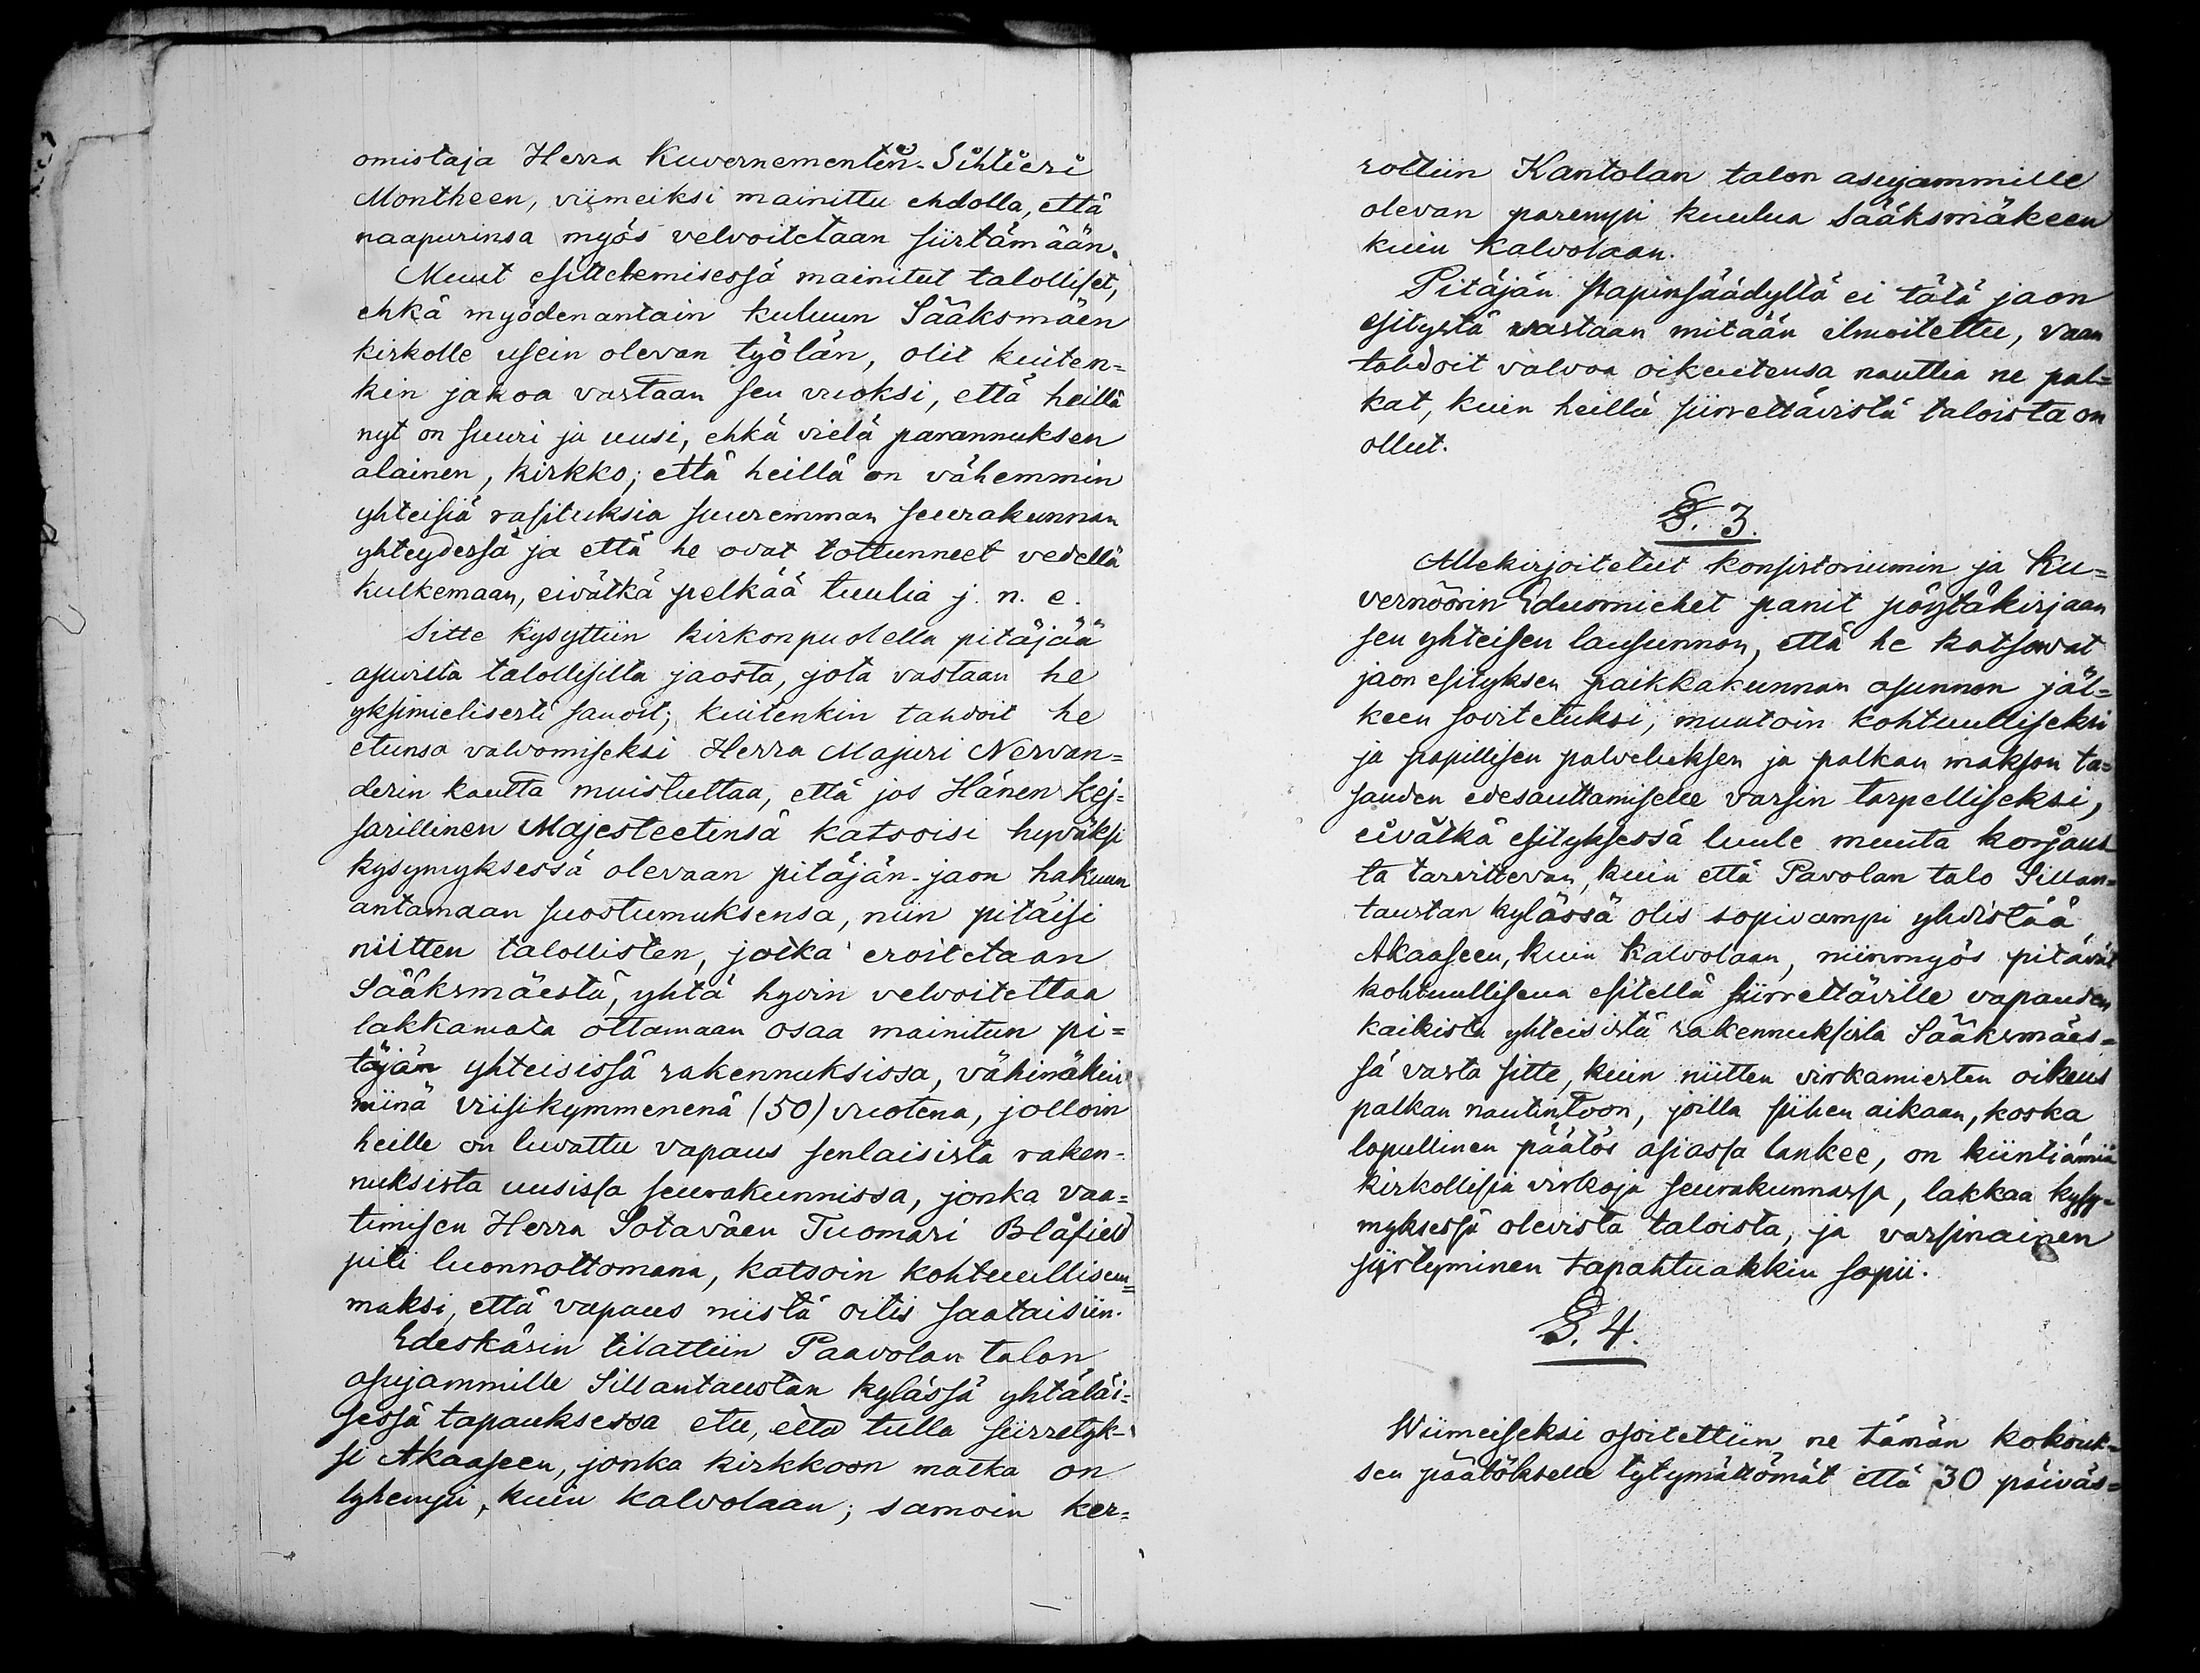 omistaja Herra Kuvernementin-Sihtieri
Montheen, viimeiksi mainittu ehdolla, että
naapurinsa myös velvoitetaan siirtämään.
Muut esittelemisessä mainitut talolliset,
ehkä myödenantain kuluun Sääksmäen
kirkolle usein olevan työlän, olit kuiten=
kin jakoa vastaan sen vuoksi, että heillä
nyt on suuri ja uusi, ehkä vielä parannuksen
alainen, kirkko; että heillä on vähemmin
yhteisiä rasituksia suuremman seurakunnan
yhteydessä ja että he ovat tottunneet vedellä
kulkemaan, eivätkä pelkää tuulia j. n. e.
Sitte kysyttiin kirkonpuolella pitäjää
asuvilta talollisilta jaosta, jota vastaan he
yksimielisesti sanoit; kuitenkin tahdoit he
etunsa valvomiseksi Herra Majuri Nervan=
derin kautta muistuttaa, että jos Hänen Kej=
sarillinen Majesteetinsä katsoisi hyväksi
kysymyksessä olevaan pitäjän-jaon hakuun
antamaan suostumuksensa, niin pitäisi
niitten talollisten, jotka eroitetaan
Sääksmäestä, yhtä hyvin velvoitettaa
lakkamata ottamaan osaa mainitun pi=
täjän yhteisissä rakennuksissa, vähinäkin
niinä viisikymmenenä (50) vuotena, jolloin
heille on luvattu vapaus senlaisista raken=
nuksista uusissa seurakunnissa, jonka vaa=
timisen Herra Sotaväen Tuomari Blåfield
piti luonnottomana, katsoin kohtuullisem=
maksi, että vapaus niistä oitis saataisiin.
Edeskäsin tilattiin Paavolan talon
asujammille Sillantaustan kylässä yhtäläi=
sessä tapauksessa etu, että tulla siirretyk=
si Akaaseen, jonka kirkkoon matka on
lyhempi, kuin Kalvolaan; samoin ker=
rottiin Kantolan talon asujammille
olevan parempi kuulua Sääksmäkeen
kuin Kalvolaan.
Pitäjän Papinsäädyltä ei tätä jaon
esitystä vastaan mitään ilmoitettu, vaan
tahdoit valvoa oikeutensa nauttia ne pal=
kat, kuin heillä siirrettävistä taloista on
ollut.
§. 3.
Allekirjoitetut konsistoriumin ja Ku=
vernöörin Edusmiehet panit pöytäkirjaan
sen yhteisen lausunnon, että he katsovat
jaon esityksen paikkakunnan asunnon jäl=
keen sovitetuksi, muutoin kohtuulliseksi
ja papillisen palveluksen ja palkan makson ta=
sauden edesauttamiselle varsin tarpelliseksi,
eivätkä esityksessä luule muuta korjaus=
ta tarvittevan, kuin että Pavolan talo Sillan=
taustan kylässä olis sopivampi yhdistää
Akaaseen, kuin Kalvolaan, niinmyös pitävät
kohtuullisena esitellä siirrettäville vapauden
kaikista yhteisistä rakennuksista Sääksmäes=
sä vasta sitte, kuin niitten virkamiesten oikeus
palkan nautintoon, joilla siihen aikaan, koska
lopullinen päätös asiassa lankee, on kiintiämiä
kirkollisia virkoja seurakunnassa, lakkaa kysy=
myksessä olevista taloista, ja varsinainen
siirtyminen tapahtuakkin sopii.
§. 4.
Wiimeiseksi osoitettiin ne tämän kokouk=
sen päätökselle tytymättömät että 30 päiväs=